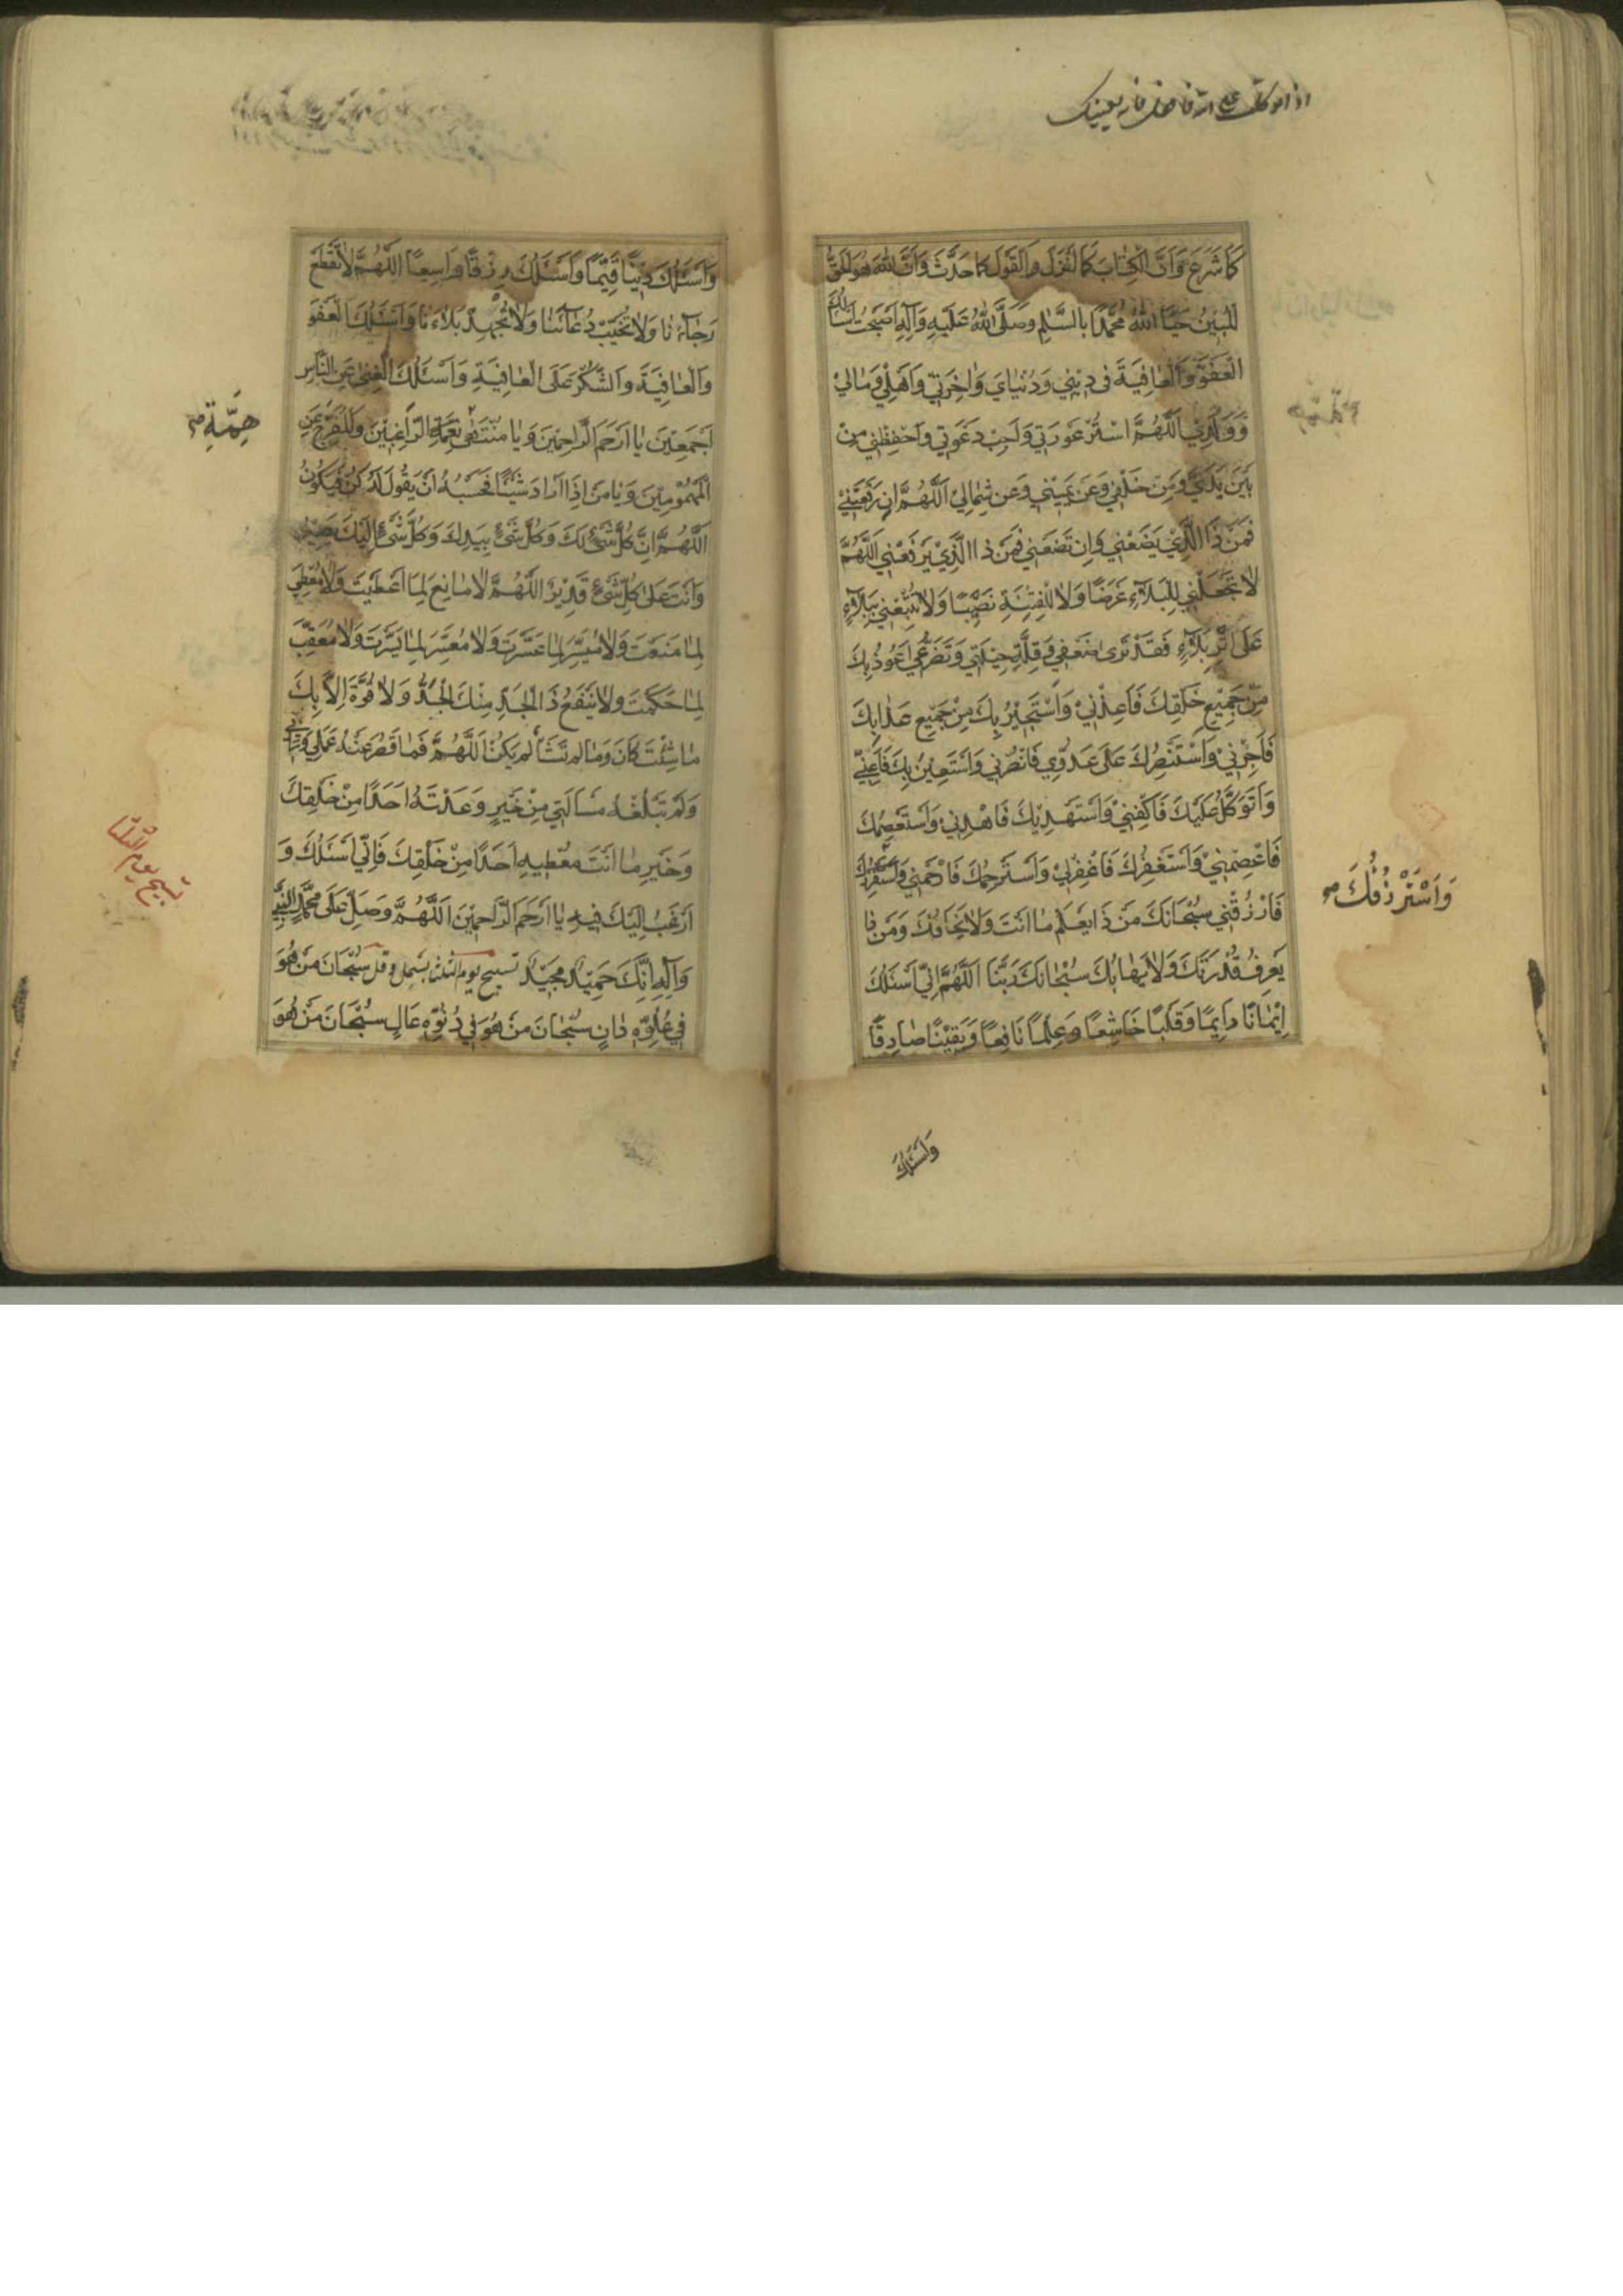 كَمَا شَرَعَ وَاَنَّ الْكِتَابَ كَمَا اَنْزَلَ وَالْقَوْلَ كَمَا حَدَّثَ وَاَنَّ اللّٰهَ هُوَ الْحَقُّ
الْمُبِيْنُ حَيَّا اللّٰهُ مُحَمَّدًا بِالسَّلٰمِ وَصَلَّى اللّٰهُ عَلَيْهِ وَآلِهِ اَصْبَحْتُ اَسْاَلُكَ
الْعَفْوَ وَالْعَافِيَةَ فى دِيْنِي وَدُنْيَايَ وَاٰخِرَتِي وَاَهْلِي وَمَالِيْ
وَوَلَدِي اَللّٰهُمَّ اسْتُرْ عَوْرَتِي وَاَجِبْ دَعْوَتِي وَاحْفَظْنِي مِنْ
بَيْنِ يَدَيَّ وَمِنْ خَلْفِي وَعَنْ يَمِيْنِي وَعَنْ شِمَالِيْ اَللّٰهُمَّ اِنْ رَفَعْتَنِيْ
فَمَنْ ذَا الَّذِيْ يَضَعُنِي وَاِنْ تَضَعْنِي فَمَنْ ذَا الَّذِيْ يَرْفَعُنِي اَللّٰهُمَّ
لَا تَجْعَلْنِي لِلْبَلَآءِ غَرَضًا وَلَا لِلْفِتْنَةِ نَصَبًا وَلَا تُتْبِعْنِي بِبَلَآءٍ
عَلٰى اَثَرِ بَلَآءٍ فَقَدْ تَرٰى ضَعْفِي وَقِلَّةَ حِيْلَتِي وَتَضَرُّعِي اَعُوْذُ بِكَ
مِنْ جَمِيْعِ خَلْقِكَ فَاَعِذْنِيْ وَاَسْتَجِيْرُ بِكَ مِنْ جَمِيْعِ عَذَابِكَ
فَاَجِرْنِيْ وَاَسْتَنْصِرُكَ عَلٰى عَدُوِّي فَانْصُرْنِي وَاَسْتَعِيْنُ بِكَ فَاَعِنِّيْ
وَاَتَوَكَّلُ عَلَيْكَ فَاكْفِنِيْ وَاَسْتَهْدِيْكَ فَاهْدِنِيْ وَاَسْتَعْصِمُكَ
فَاعْصِمْنِيْ وَاَسْتَغْفِرُكَ فَاغْفِرْلِيْ وَاَسْتَرْحِمُكَ فَارْحَمْنِي
وَاَسْتَرْزِقُكَ صح
فَارْزُقْنِي سُبْحَانَكَ مَنْ ذَا يَعْلَمُ مَا اَنْتَ وَلَا يَخَافُكَ وَمَنْ ذَا
يَعْرِفُ قُدْرَتَكَ وَلَا يَهَابُكَ سُبْحَانَكَ رَبَّنَا اَللّٰهُمَّ اِنِّي اَسْئَلُكَ
اِيْمَانًا دَايِمًا وَقَلْبًا خَاشِعًا وَعِلْمًا نَافِعًا وَيَقِيْنًا صَادِقًا
وَاَسْئَلُكَ
وَاَسْئَلُكَ دِيْنًا قَيِّمًا وَاَسْئَلُكَ رِزْقًا وَاسِعًا اَللّٰهُمَّ لَا تَقْطَعْ
رَجَاءَنَا وَلَا تُخَيِّبْ دُعَائَنَا وَلَا تُجْهِدْ بَلَاءَنَا وَاَسْئَلُكَ الْعَفْوَ
وَالْعَافِيَةَ وَالشُّكْرَ عَلَى الْعَافِيَةِ وَاَسْئَلُكَ الْغِنٰى عَنِ النَّاسِ
اَجْمَعِيْنَ يَا اَرْحَمَ الرَّاحِمِيْنَ وَيَا مُنْتَهٰى هِمَّةِ الرَّاغِبِيْنَ وَالْمُفَرِّجُ عَنِ
هِمَّةِ صح
الْمَهْمُوْمِيْنَ وَيَا مَنْ اِذَا اَرَادَ شَيْئًا فَحَسْبُهُ اَنْ يَقُوْلَ لَهُ كُنْ فَيَكُوْنُ
اَللّٰهُمَّ اِنَّ كُلَّ شَيْءٍ لَكَ وَكُلَّ شَيْءٍ بِيَدِكَ وَكُلَّ شَيْءٍ اِلَيْكَ يَصِيْرُ
وَاَنْتَ عَلٰى كُلِّ شَيْءٍ قَدِيْرٌ اَللّٰهُمَّ لَا مَانِعَ لِمَا اَعْطَيْتَ وَلَا مُعْطِيَ
لِمَا مَنَعْتَ وَلَا مُيَسِّرَ لِمَا عَسَّرْتَ وَلَا مُعَسِّرَ لِمَا يَسَّرْتَ وَلَا مُعَقِّبَ
لِمَا حَكَمْتَ وَلَا يَنْفَعُ ذَا الْجَدِّ مِنْكَ الْجَدُّ وَلَا قُوَّةَ اِلَّا بِكَ
مَا شِئْتَ كَانَ وَمَا لَمْ تَشَأْ لَمْ يَكُنْ اَللّٰهُمَّ فَمَا قَصُرَ عَنْهُ عَمَلِي وَرَأْيِي
وَلَمْ تَبْلُغْهُ مَسْاَلَتِي مِنْ خَيْرٍ وَعَدْتَهُ اَحَدًا مِنْ خَلْقِكَ
وَخَيْرِ مَا اَنْتَ مُعْطِيهِ اَحَدًا مِنْ خَلْقِكَ فَاِنِّي اَسْئَلُكَ وَ
اَرْغَبُ اِلَيْكَ فِيهِ يَا اَرْحَمَ الرَّاحِمِيْنَ اَللّٰهُمَّ وَصَلِّ عَلٰى مُحَمَّدٍ النَّبِيِّ
وَآلِهِ اِنَّكَ حَمِيْدٌ مَجِيْدٌ تسبيح يوم الثلث بسمل وقل سُبْحَانَ مَنْ هُوَ
تسبيح يوم الثلثا
فِي عُلُوِّهِ دَانٍ سُبْحَانَ مَنْ هُوَ فِي دُنُوِّهِ عَالٍ سُبْحَانَ مَنْ هُوَ